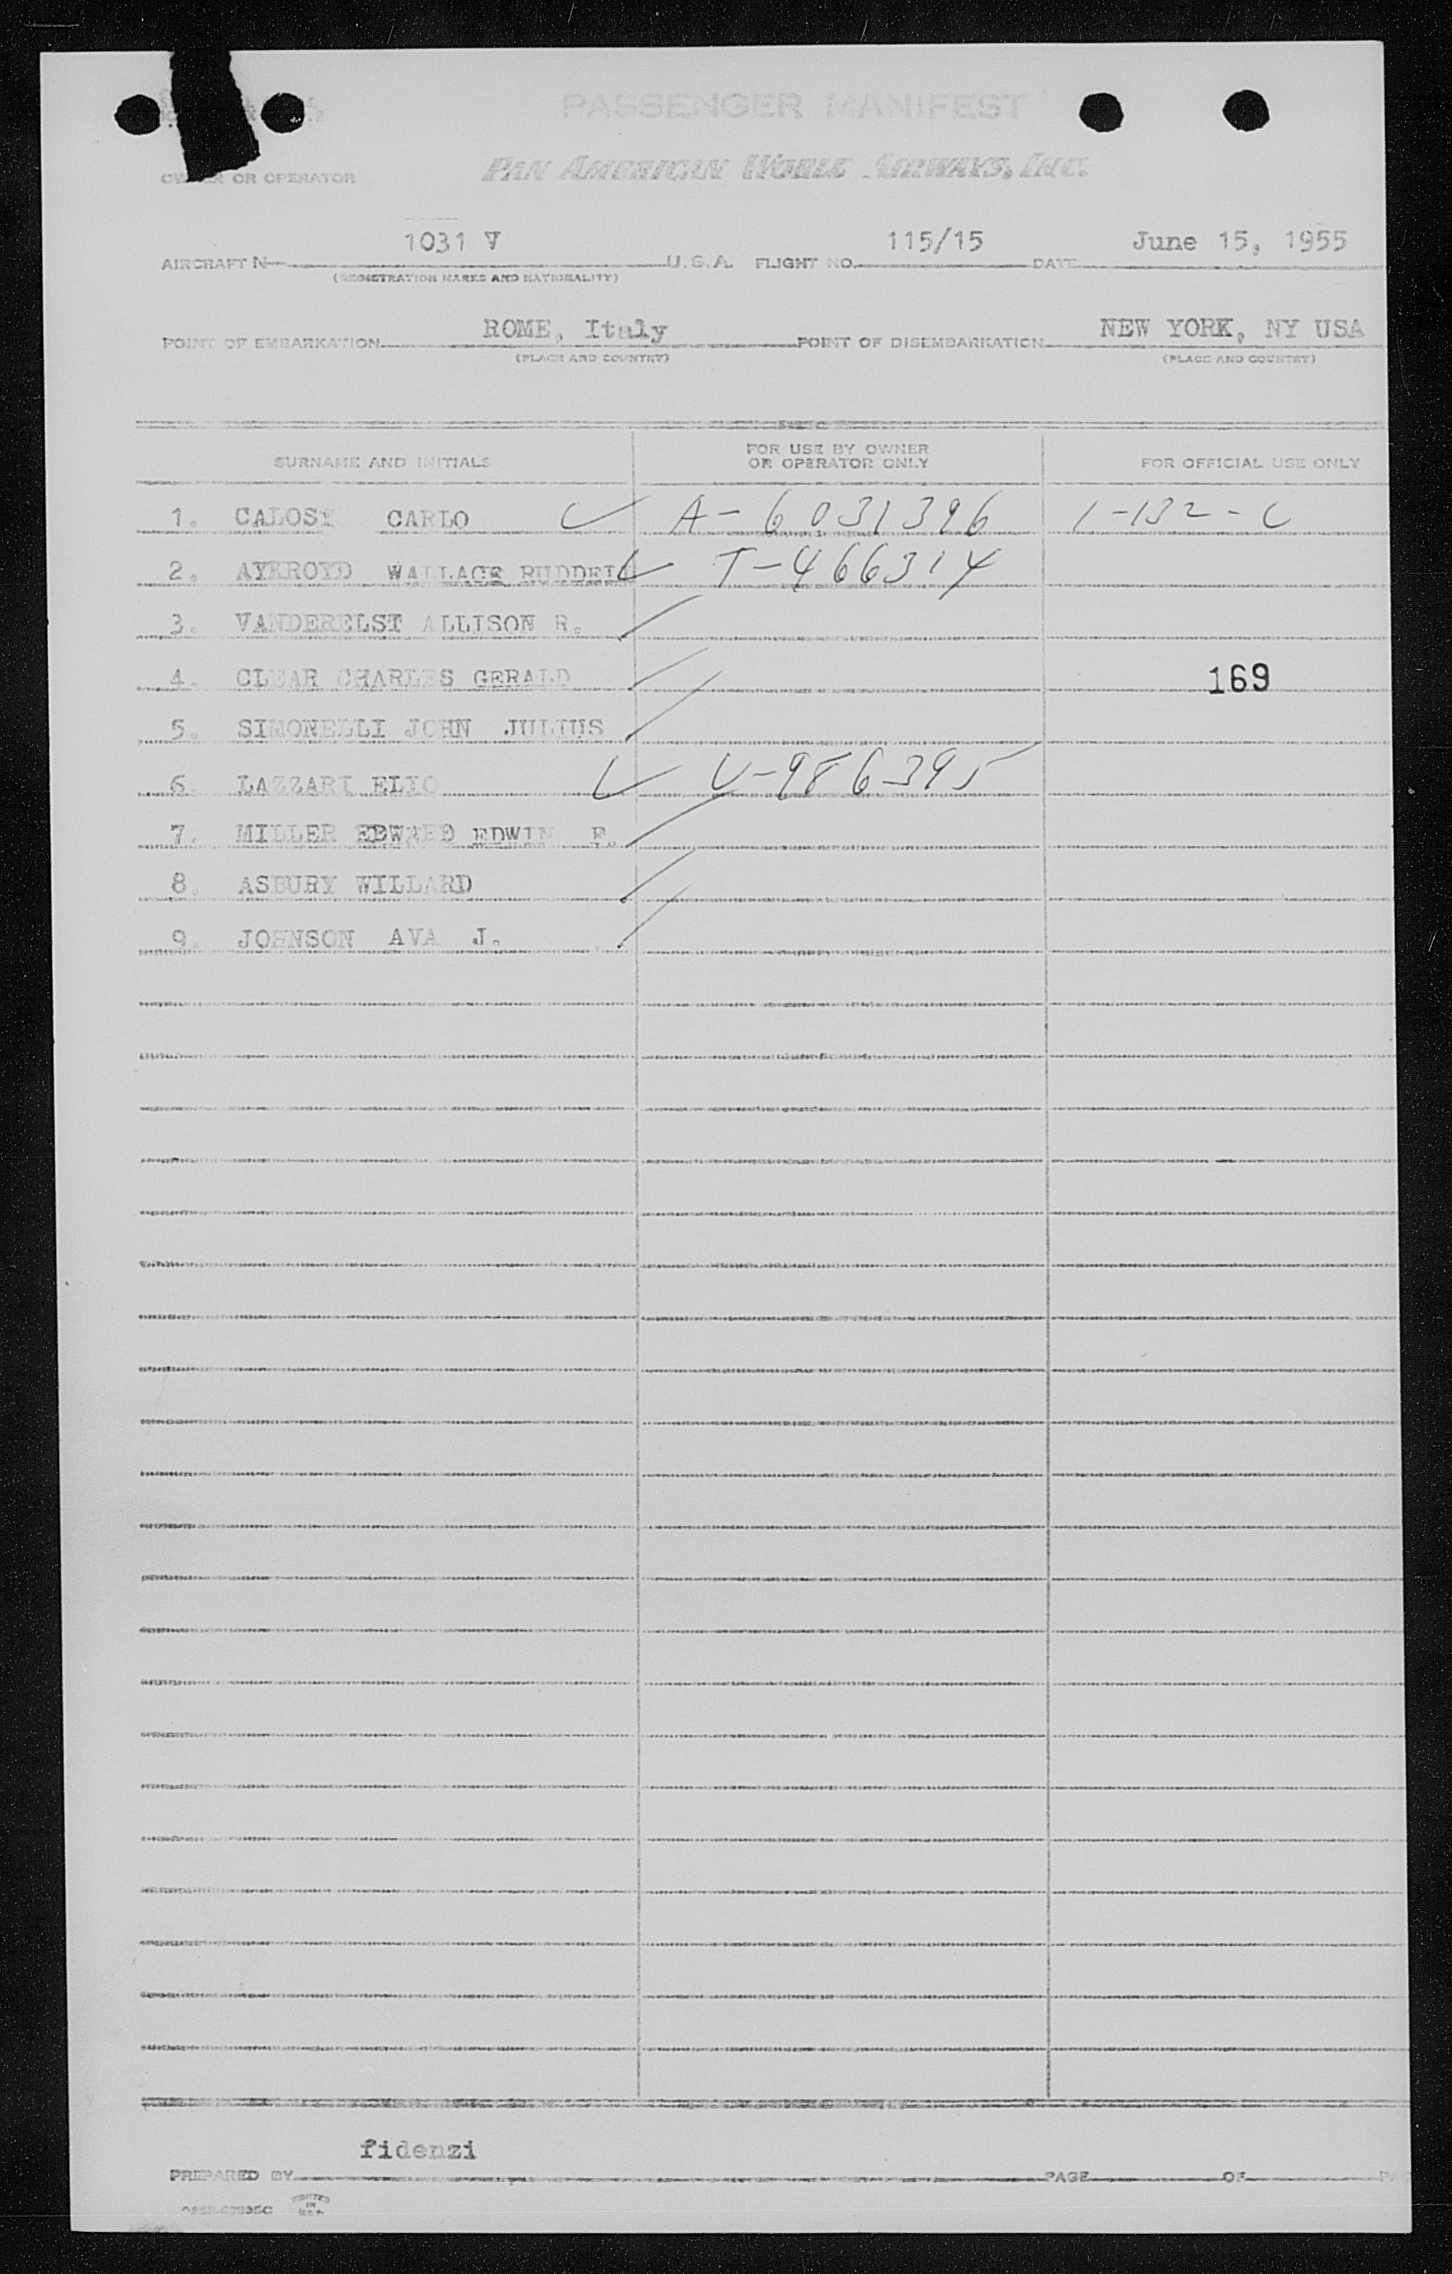 PASSENGER MANIFEST
OWNER OR OPERATOR
PAN AMERICAN WORLD AIRWAYS, INC.
AIRCRAFT N 1031 V U.S.A. FLIGHT NO. 115/15 DATE June 15, 1955
(REGISTRATION MARKS AND NATIONALITY)
POINT OF EMBARKATION ROME, Italy POINT OF DISEMBARKATION NEW YORK, NY USA
(PLACE AND COUNTRY) (PLACE AND COUNTRY)
SURNAME AND INITIALS FOR USE BY OWNER OR OPERATOR ONLY FOR OFFICIAL USE ONLY
1. CALOSI CARLO A-6031396 1-132-C
2. AYKROYD WALLACE RUDDELL T-466314
3. VANDERELST ALLISON R.
4. CLEAR CHARLES GERALD 169
5. SIMONELLI JOHN JULIUS
6. LAZZARI ELIO V-986395
7. MILLER EDWARD EDWIN F.
8. ASBURY WILLARD
9. JOHNSON AVA J.
fidenzi
PREPARED BY PAGE OF
PRINTED IN